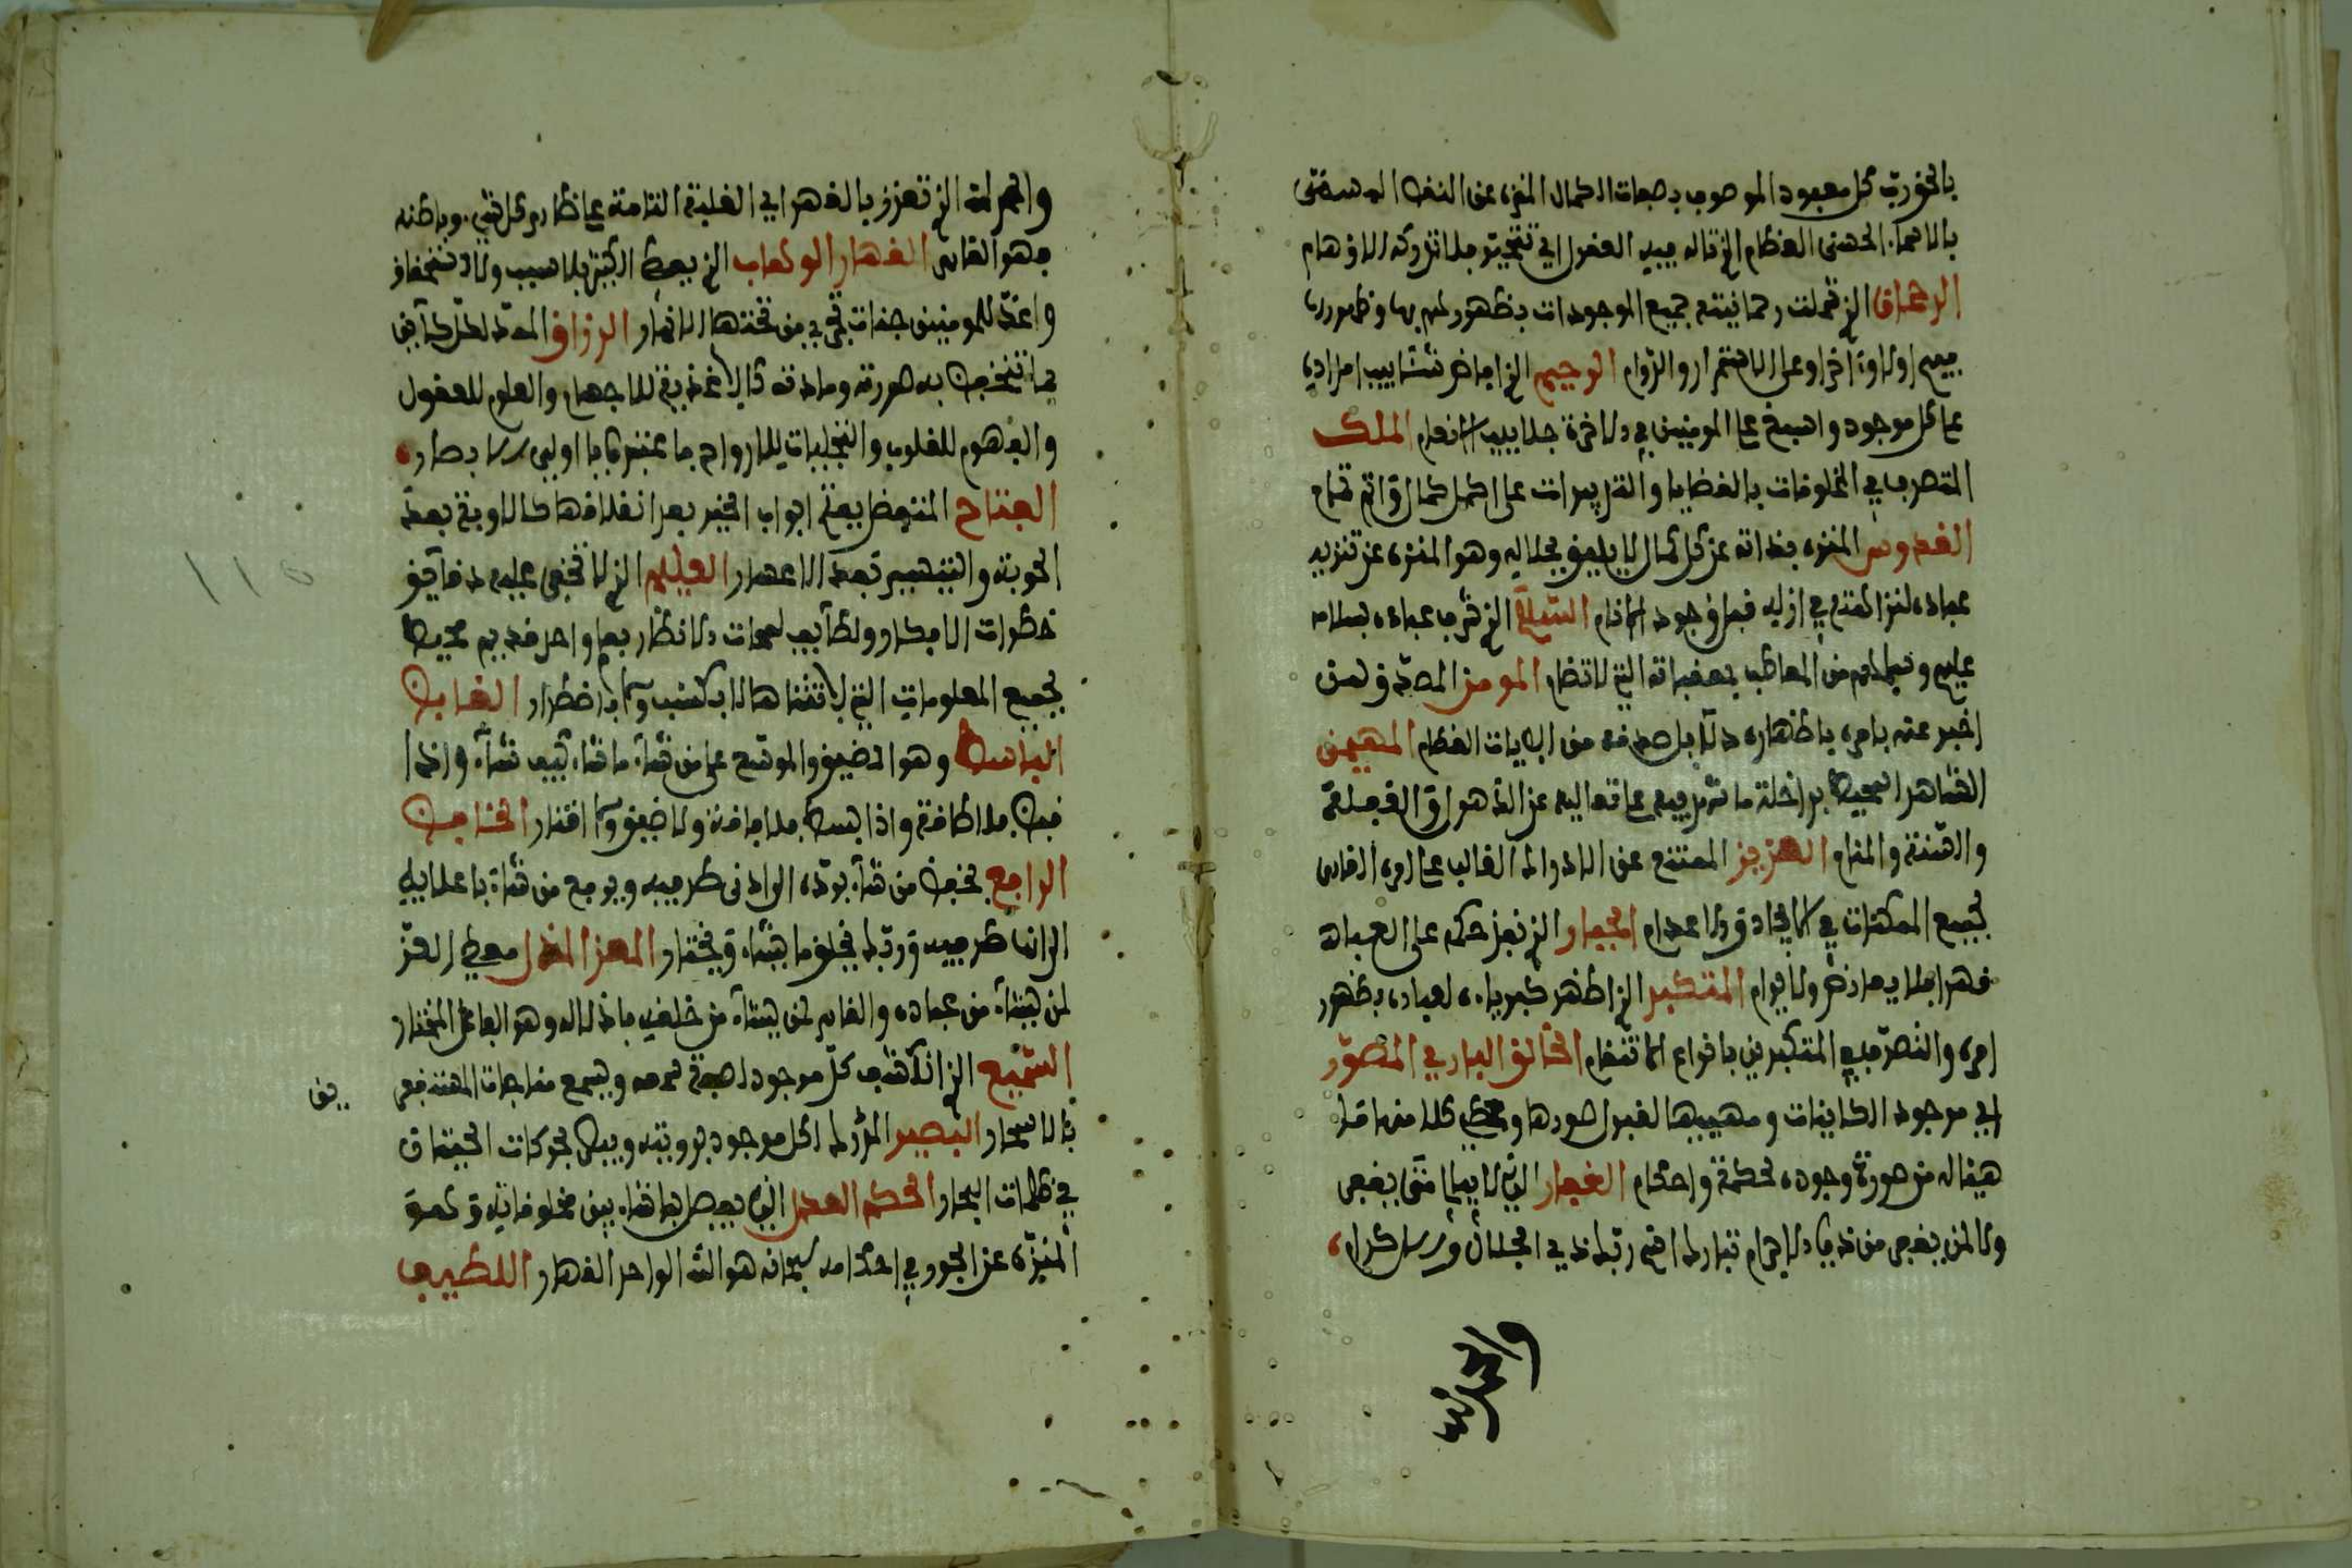 بالحق رب كل معبود الموصوف بصفات الكمال المنزه عن النقص المسمى
بالاسماء الحسنى العظام الذي تاله فيه العقول اي تتحير فلا تدركه الاوهام
الرحمان الذي شملت رحمانيته جميع الموجودات بظهوره لهم بها وظهورها
فيهم اولا وآخرا وعلى الاستمرار والدوام الرحيم الذي افاض شئابيب امداده
على كل موجود واسبغ على المومنين في الاخرة جلابيب الانعام الملك
المتصرف في المخلوقات بالقضايا والتدبيرات على اكمل كمال واتم تمام
القدوس المنزه بذاته عن كل كمال لا يليق بجلاله وهو المنزه عن تنزيه
عباده لنزاهته في ازله قبل وجود الانام السلام الذي شرف عباده بسلامه
عليهم وسلامهم من المعاطب بمعقباته التي لا تضام المومن المصدق لمن
اخبر عنه بامره باظهاره دلايل صدقه من الايات العظام المهيمن
الشاهد المحيط بداخلة ما شهد فيه على تعاليه عن الذهول والغفلة
والسنة والمنام العزيز الممتنع عن الادراك الغالب على امره القادر
لجميع الممكنات في الايجاد والاعدام الجبار الذي نفذ حكمه على العباد
قهرا فلا يعارض ولا يرام المتكبر الذي اظهر كبرياءه لعباده بظهور
امره والتصرف في المتكبرين بانواع الانتقام الخالق الباري المصور
اي موجود الكاينات ومهييها لقبول صورها ومعطي كلا منها ما
هياله من صورة وجوده بحكمة واحكام الغفار الذي لا يبالي متى يغفر
ولا لمن يغفر من ذوي الاجرام تبارك اسم ربك ذي الجلال والاكرام
والجلالة
والجلالة الذي تعزز بالقهر اي الغلبة التامة على ظاهر كل شيء وباطنه
فهو القادر القهار الوهاب الذي يعطي الكثير بلا سبب ولا استحقاق
واعد للمومنين جنات تجري من تحتها الانهار الرزاق الممد لكل كاين
بما تتحفظ به صورته ومادته كالاغذية للاجسام والعلوم للعقول
والفهوم للقلوب والتجليات للارواح فاعتبروا يا اولي الابصار
الفتاح المتفضل بفتح ابواب الخير بعد انغلاقها كالاوبة بعد
الحوبة والتيسير بعد الاعسار العليم الذي لا تخفى عليه دقايق
خطرات الافكار ولطايف لمحات الانظار بعلم واحد قديم محيط
بجميع المعلومات التي لا تتناها لا بكسب ولا باضطرار القابض
الباسط وهو المضيق والموسع على من شاء ما شاء كيف شاء واذا
قبض فلا طاقة واذا بسط فلا فاقة ولا ضيق ولا اقتار الخافض
الرافع يخفض من شاء برده الى ادنى طرفيه ويرفع من شاء باعلايه
الى اسنا طرفيه وربك يخلق ما يشاء ويختار المعز المذل معطي العز
لمن يشاء من عباده والقاهر لمن يشاء من خلقه باذلاله وهو الفاعل المختار
السميع الذي انكشف كل موجود لصفة سمعه ويسمع مناجات المستغفرين
بالاسحار البصير المدرك لكل موجود برويته ويبصر بحركات الحيتان
في ظلمات البحار الحكم العدل الذي يفصل بما شاء بين مخلوقاته وهو
المنزه عن الجور في احكامه سبحانه هو الله الواحد القهار اللطيف